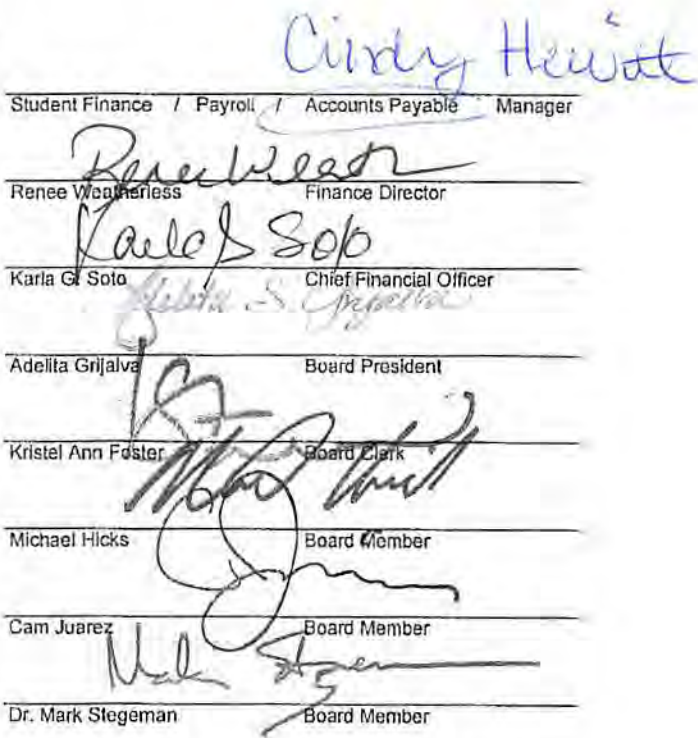 Cindy Hewitt
Student Finance / Payroll / Accounts Payable Manager
Renee Weath
Renee Weatherless Finance Director
Karla G Soto
Karla G. Soto Chief Financial Officer
Adelita S. Grijalva
Adelita Grijalva Board President
Kristel Ann Foster Board Clerk
Michael Hicks Board Member
Cam Juarez Board Member
Mark Stegeman
Dr. Mark Stegeman Board Member